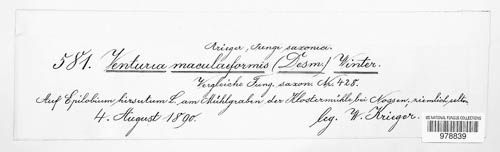 Krieger, Fungi saxonici.
581. Venturia maculaeformis (Desm.) Winter.
Vergleiche Fung. saxon. No. 428.
Auf Epilobium hirsutum L., am Mühlgraben der Klostermühle bei Nossen, ziemlich selten
4. August 1890. leg. W. Krieger.
US NATIONAL FUNGUS COLLECTIONS
978839